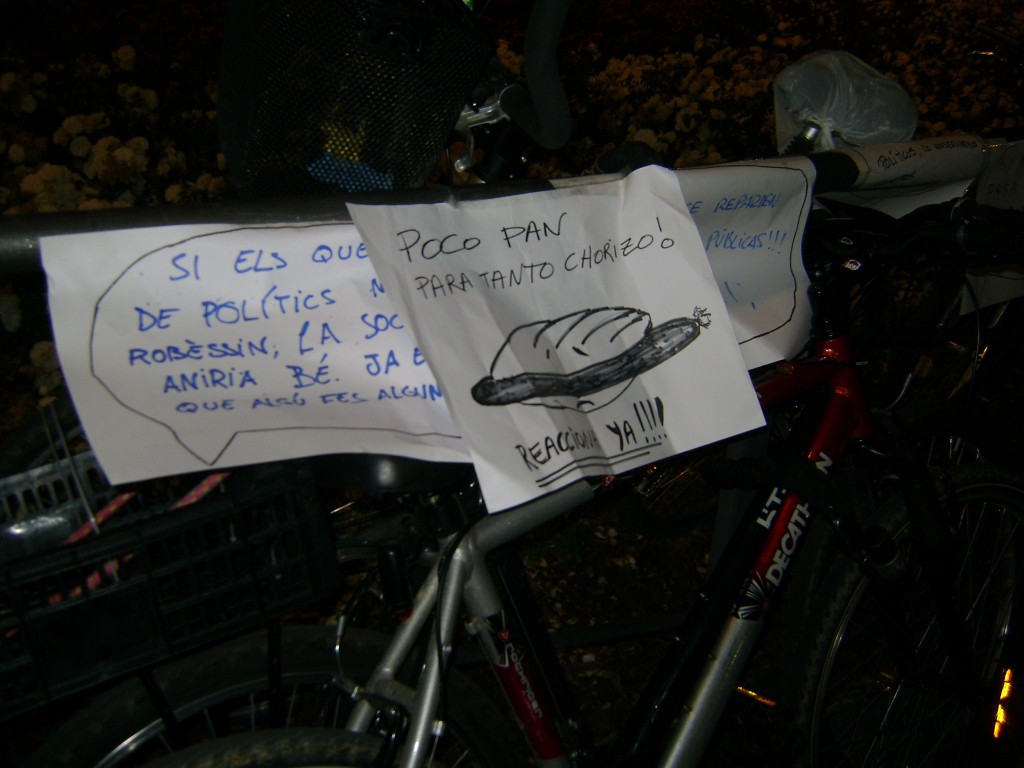 SI ELS QUE
DE POLÍTICS
ROBÈSSIN, LA SOC
ANIRIA BÉ. JA
QUE ALGÚ FES ALGUN
POCO PAN
PARA TANTO CHORIZO!
REACCIONA YA!!!!
E REPARTEN
PÚBLICAS!!!
POLÍTICOS,
L'T-
DECAT
N
ROCKRIDER